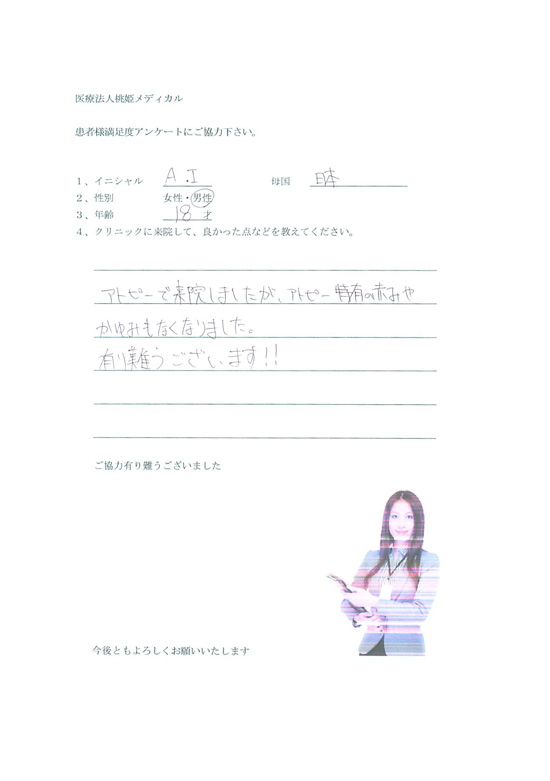 医療法人桃姫メディカル
患者様満足度アンケートにご協力下さい。
1、イニシャル A.I 母国 日本
2、性別 女性・男性
3、年齢 18才
4、クリニックに来院して、良かった点などを教えてください。
アトピーで来院しましたが、アトピー特有の赤みや
かゆみもなくなりました。
有り難うございます!!
ご協力有り難うございました
今後ともよろしくお願いいたします